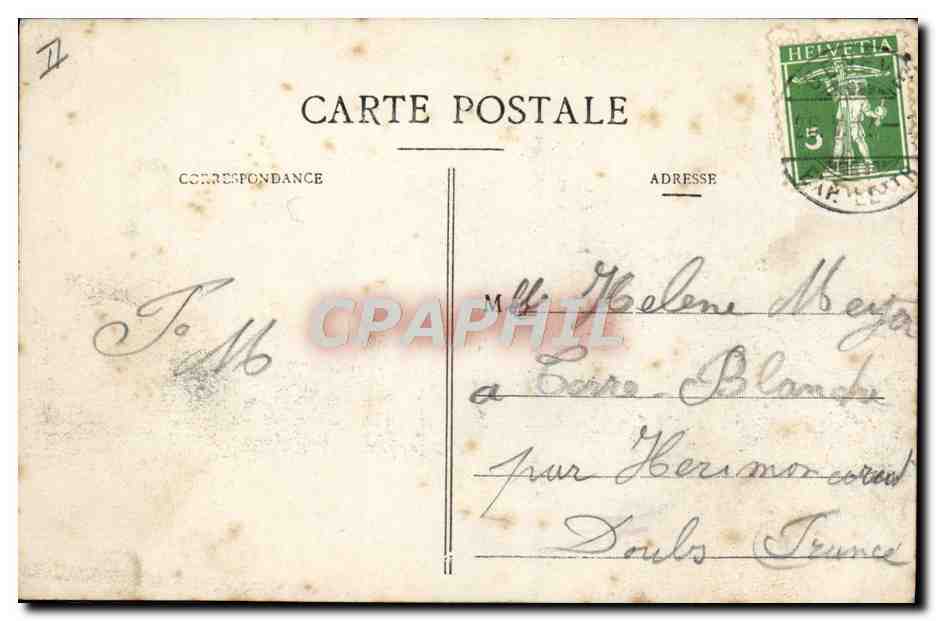 II
HELVETIA
5
CARTE POSTALE
CORRESPONDANCE
ADRESSE
Mlle Helene Meyer
a Terre-Blanche
par Herimoncourt
Doubs France
M
CPAPHIL